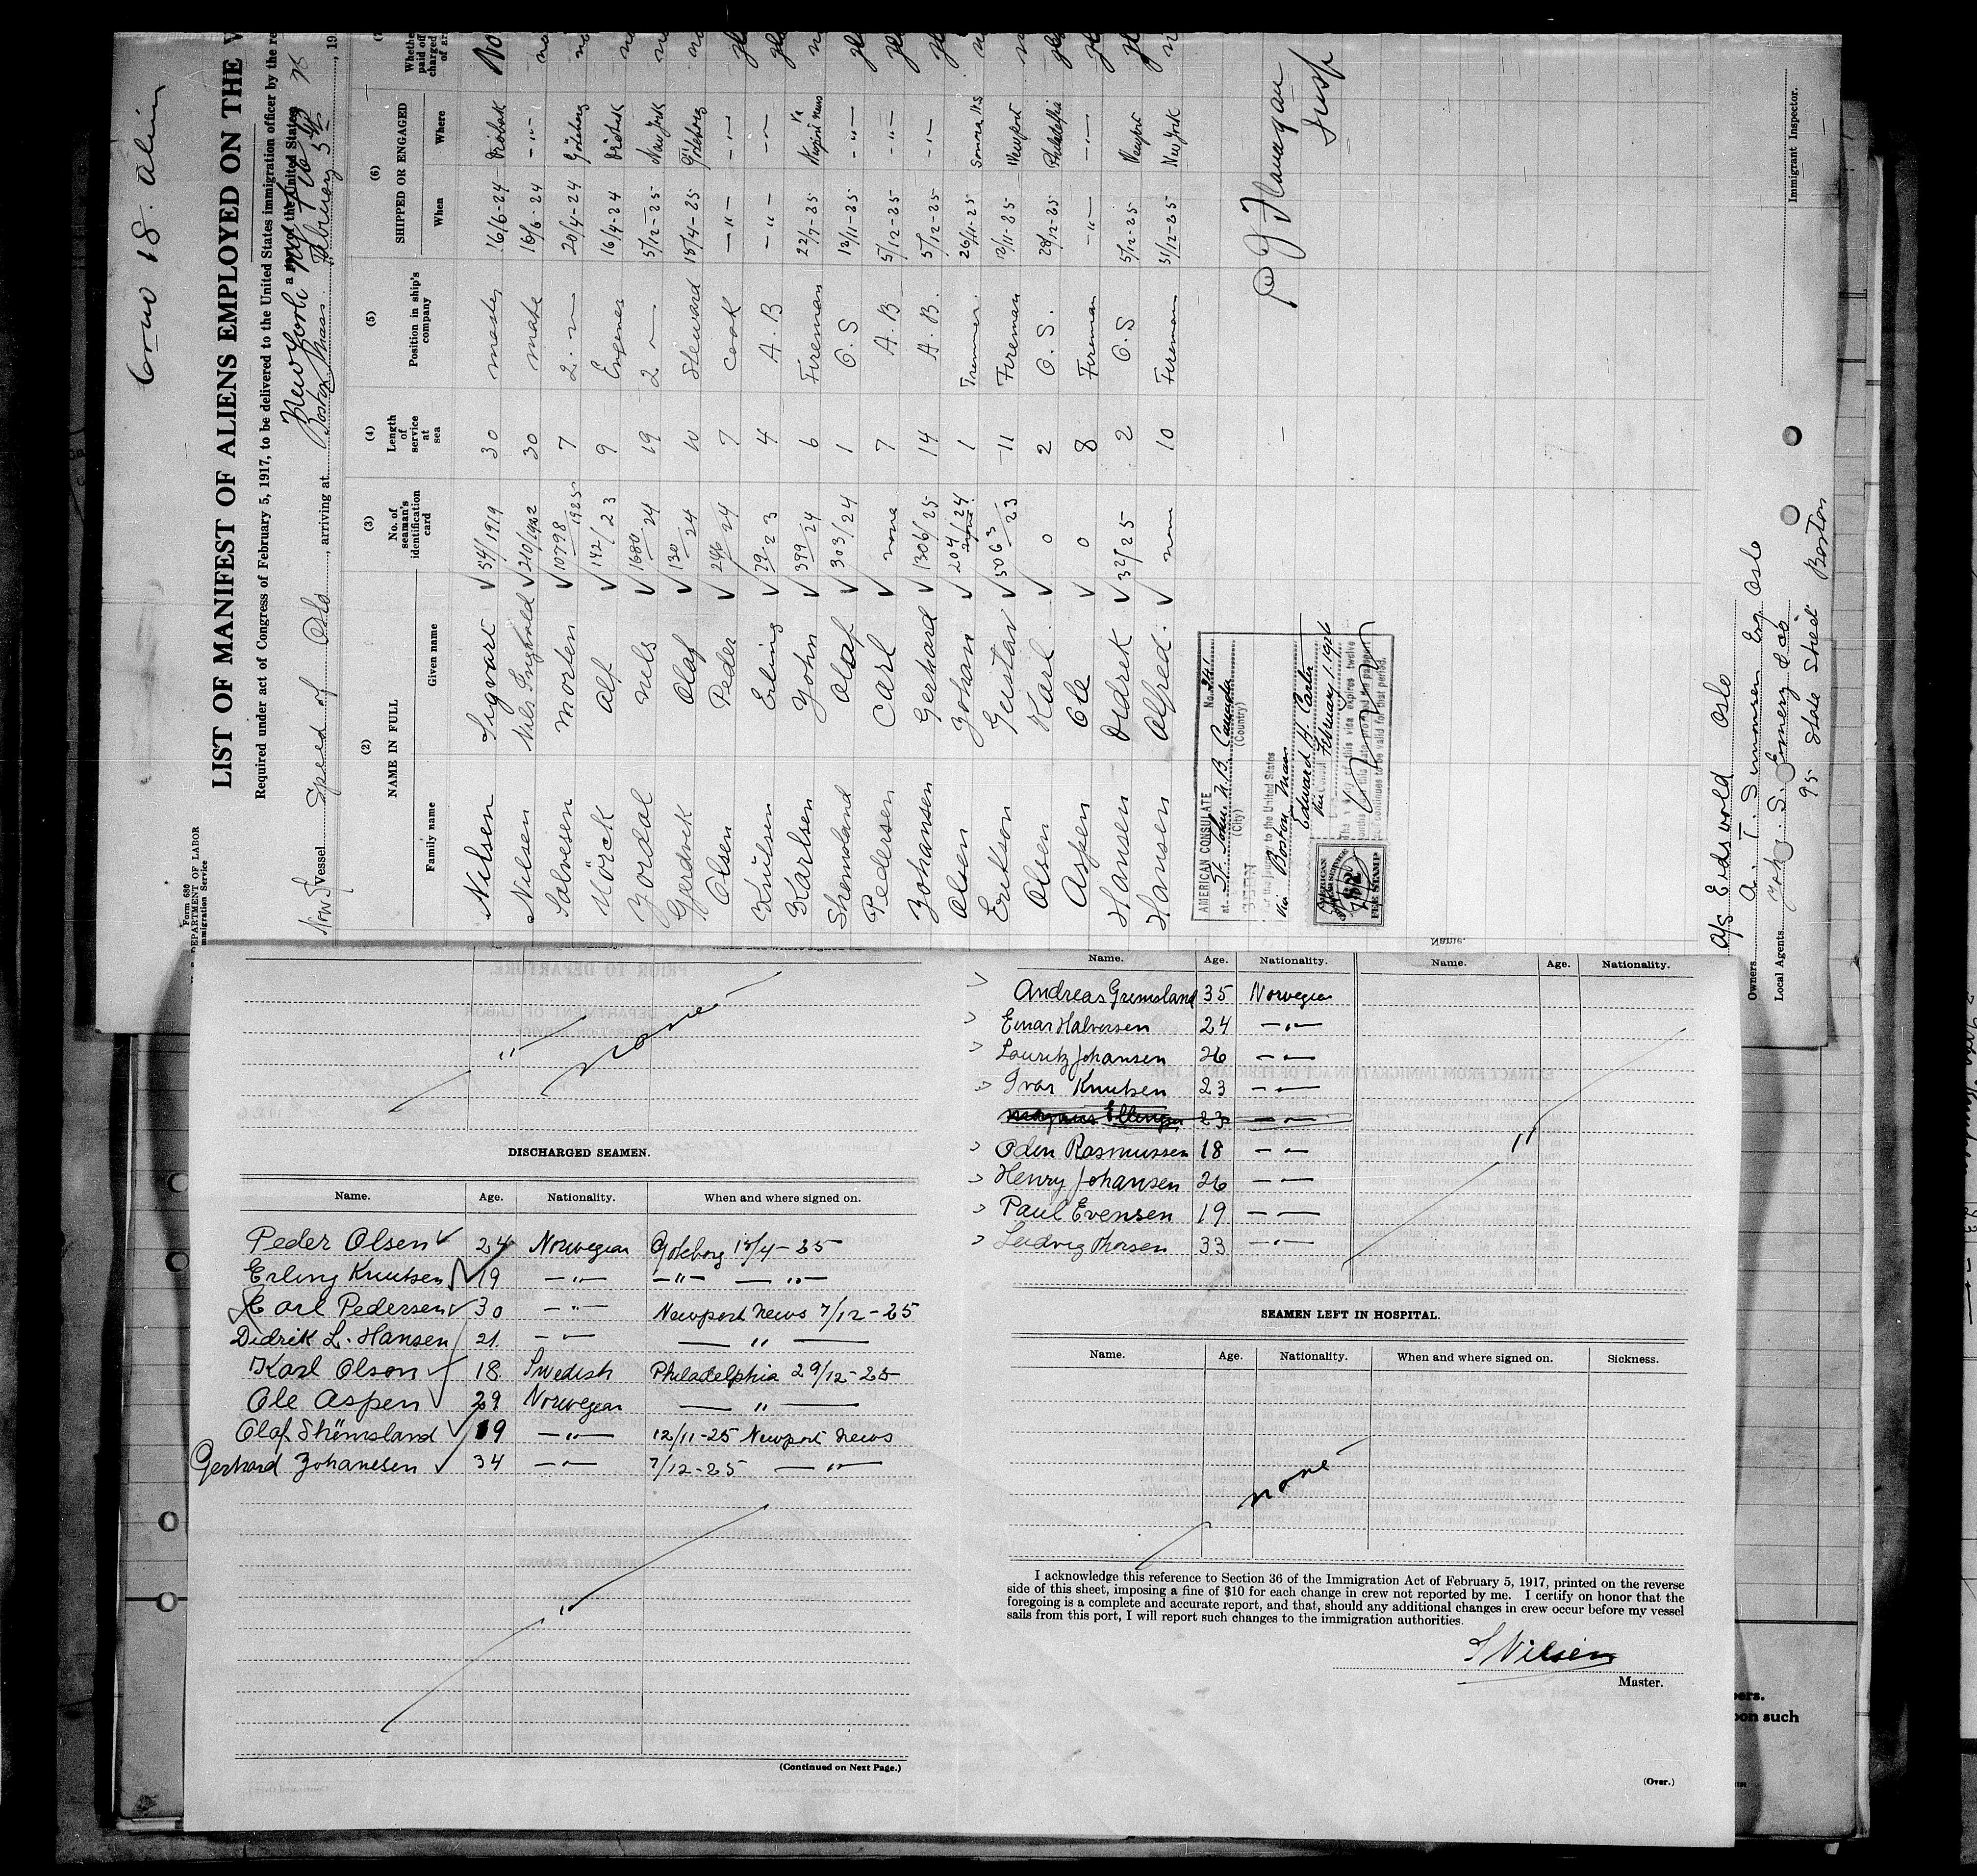 Crew 18. alien
Form 680
DEPARTMENT OF LABOR
Immigration Service
LIST OF MANIFEST OF ALIENS EMPLOYED ON THE V
Required under act of Congress of February 5, 1917, to be delivered to the United States immigration officer by the re
New York
Vessel Speed of Oslo, arriving at Boston Mass. February 5th, 19
(2) NAME IN FULL (3) No. of seaman's identification card (4) Length of service at sea (5) Position in ship's company (6) SHIPPED OR ENGAGED
Family name Given name When Where
Nilsen Sigvart 54/1919 30 master 16/6-24 Dröbak No
Nilsen Nils Ingvald 210/1902 30 mate 16/6-24 -"-
Salvesen Morten 10798/1925 7 2. — 20/4-24 Göteborg
Mörck Alf 142/23 9 Engener 16/4-24 Dröbak
Jordal Nels 1680/24 19 2 — 5/12-25 New York
Gjerdvik Olaf 130/24 10 Steward 15/4-25 Göteborg
Olsen Peder 246/24 7 Cook -"- -"-
Knutsen Erling 79/23 4 A.B -"- -"-
Karlsen John 399/24 6 Fireman 22/7-25 Newport News
Shemsland Olaf 303/24 1 O.S 12/11-25 -"-
Pedersen Carl none 7 A.B 5/12-25 -"-
Johansen Gerhard 1306/25 14 A.B. 5/12-25 -"-
Olsen Johan 204/24 1 Trimmer 26/11-25
Erikson Gustav 5063/23 11 Fireman 12/11-25 Newport
Olsen Karl 0 2 O.S. 28/12-25 Philadelphia
Aspen Ole 0 8 Fireman -"- -"-
Hansen Didrek 32/25 2 O.S 5/12-25 Newport
Hansen Alfred. none 10 Fireman 31/12-25 New York
P J Flanagan
Insp
AMERICAN CONSULATE
at St. John, N.B. Canada No. 241
(City) (Country)
SEEN
For the journey to the United States
via Boston Mass
Edward H. Carter
Vice Consul February 1. 1926
FEE STAMP
A/S Eidsvold Oslo
Owners A. T. Simonsen Esq. Oslo
Local Agents John S. Emery & Co
95 State Street Boston
Immigrant Inspector.
" None
DISCHARGED SEAMEN.
Name. Age. Nationality. When and where signed on.
Peder Olsen 24 Norwegian Göteborg 15/4-25
Erling Knutsen 19 -"- -"- -"-
Carl Pedersen 30 -"- Newport News 7/12-25
Didrik L. Hansen 21 -"- -"-
Karl Olson 18 Swedish Philadelphia 29/12-25
Ole Aspen 29 Norwegian -"-
Olaf Shemsland 19 -"- 12/11-25 Newport News
Gerhard Johanesen 34 -"- 7/12-25 -"-
(Continued on Next Page.)
Name. Age. Nationality. Name. Age. Nationality.
Andreas Gremsland 35 Norwegian
Einar Halversen 24 -"-
Lauritz Johansen 26 -"-
Ivar Knutsen 23 -"-
23 -"-
Oden Rasmussen 18 -"-
Henry Johansen 26 -"-
Paul Evensen 19 -"-
Ludvig Thorsen 33 -"-
SEAMEN LEFT IN HOSPITAL.
Name. Age. Nationality. When and where signed on. Sickness.
none
I acknowledge this reference to Section 36 of the Immigration Act of February 5, 1917, printed on the reverse
side of this sheet, imposing a fine of $10 for each change in crew not reported by me. I certify on honor that the
foregoing is a complete and accurate report, and that, should any additional changes in crew occur before my vessel
sails from this port, I will report such changes to the immigration authorities.
S Nilsen
Master.
(Over.)